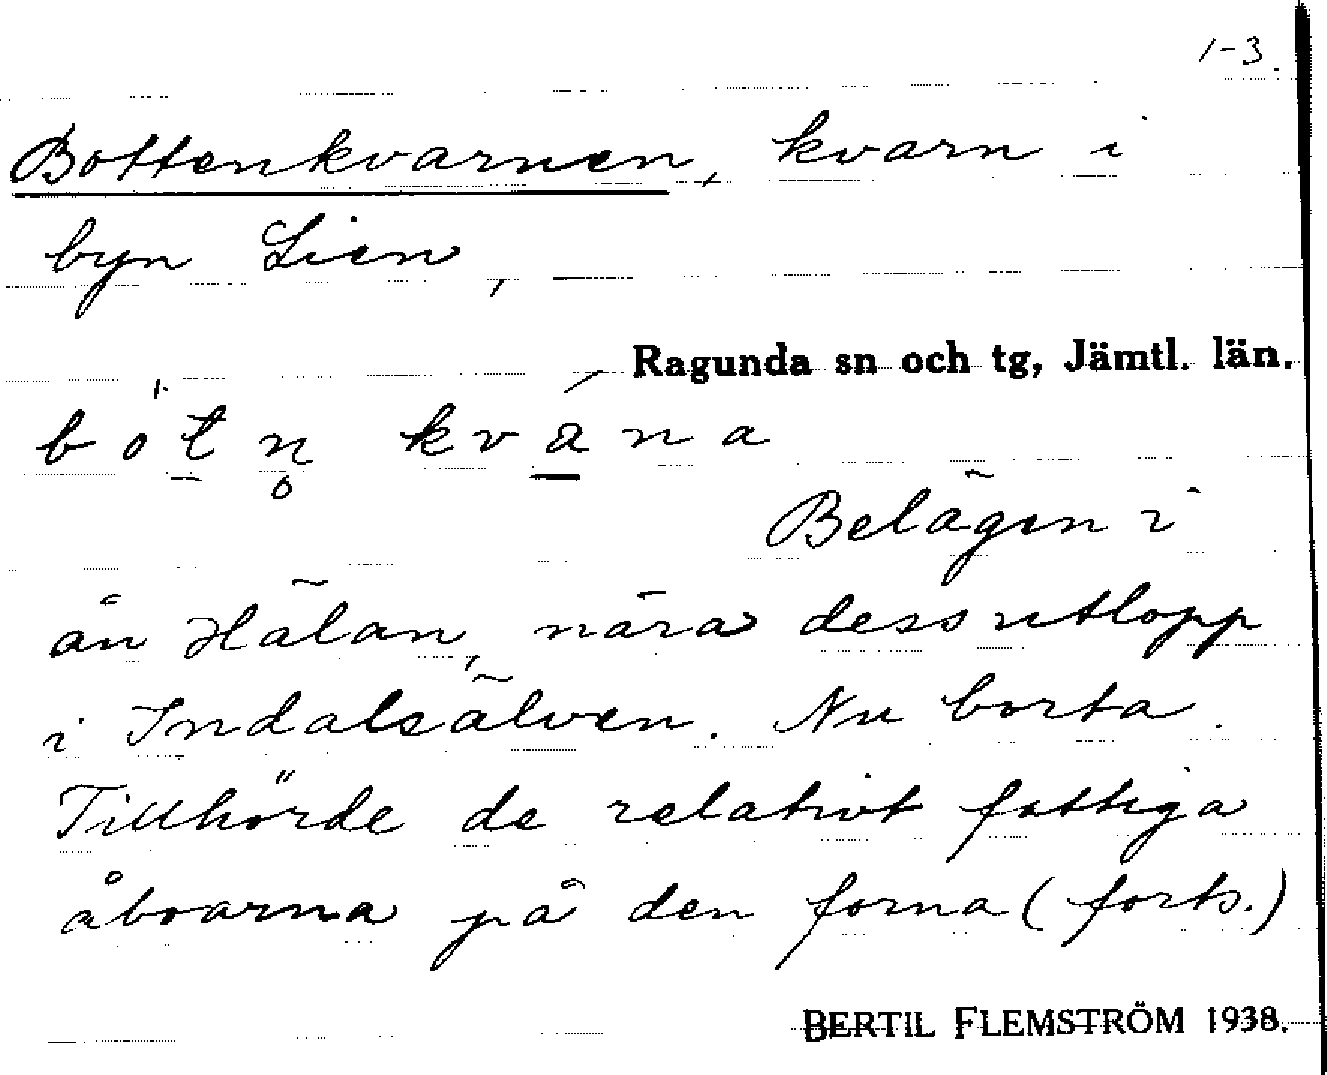 1-3.
Bottenkvarnen, kvarn i
byn Lien,
Ragunda sn och tg, Jämtl. län.
bòt̲n̥ kvá̲na
Belägen i
ån Hälån, nära dess utlopp
i Indalsälven. Nu borta.
Tillhörde de relativt fattiga
åboarna på den forna (forts.)
BERTIL FLEMSTRÖM 1938.